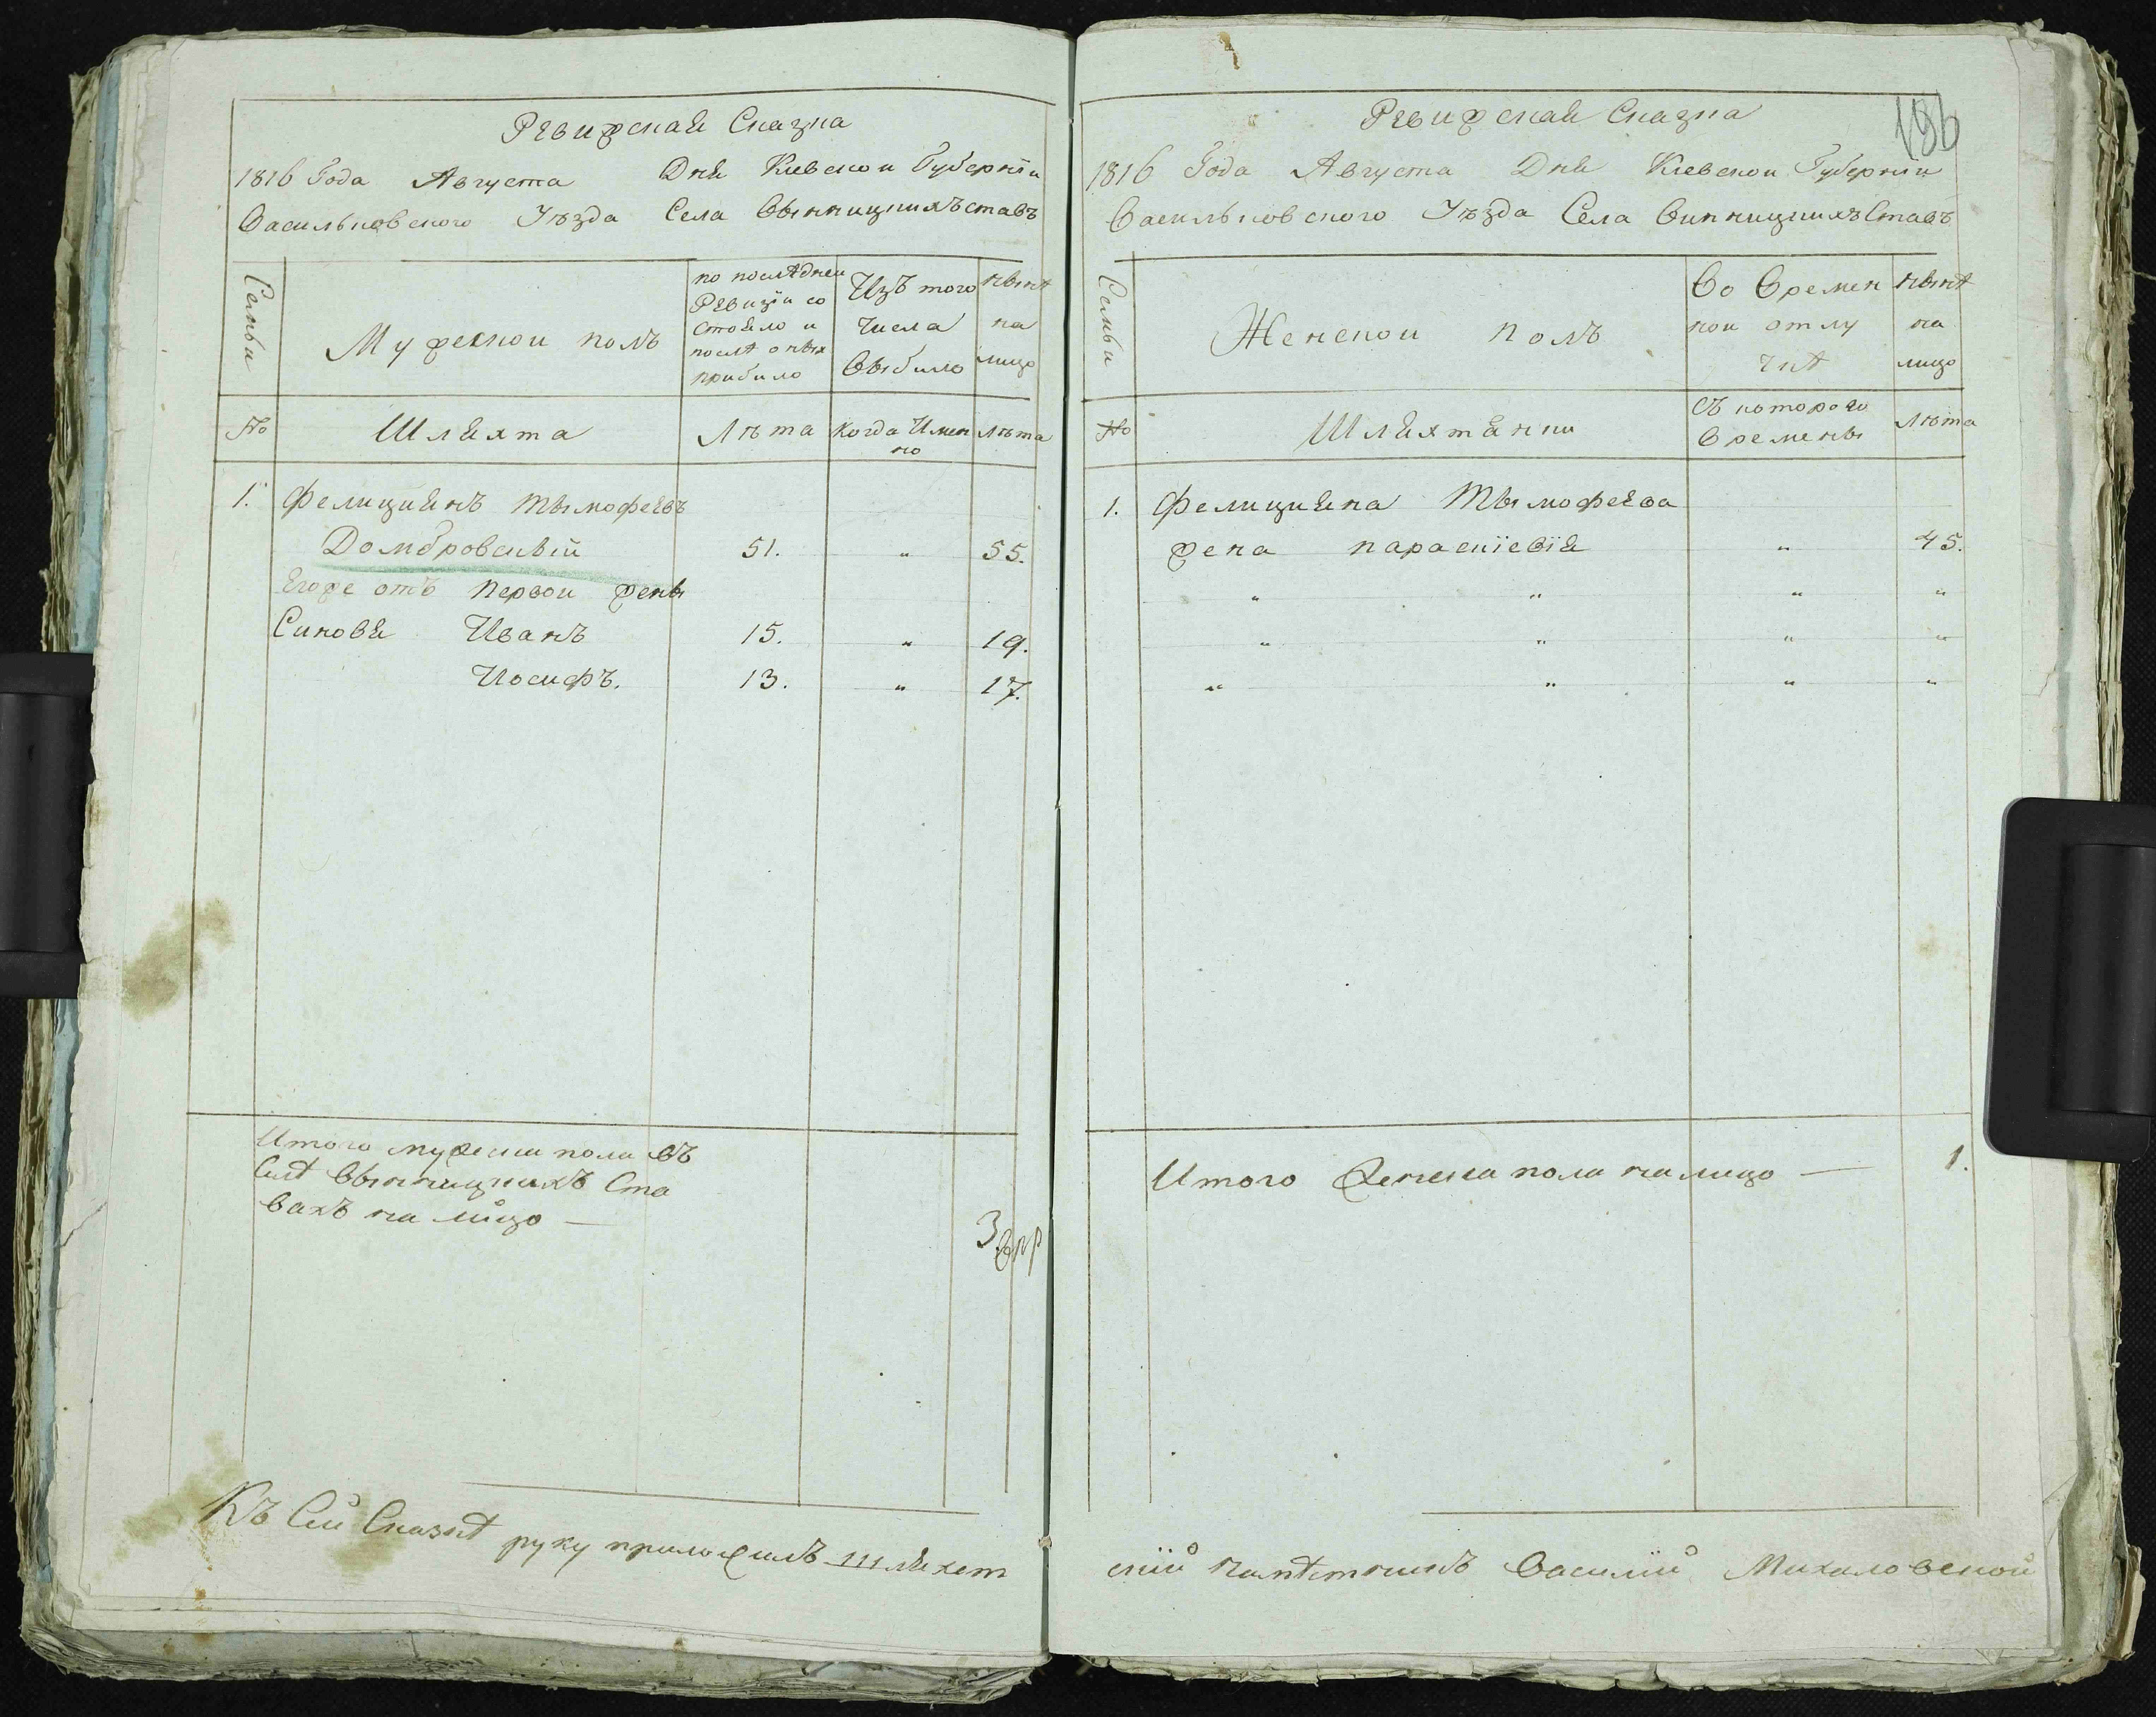 Ревизская Сказка
1816 Года Августа Дня Киевской Губернїи
Васильковского Уезда Села Вынницкихъ ставъ
Семьи
Мужеской полъ
по послѣднеи
Ревизїи со
стояло и
послѣ оных
прибило
Изъ того
числа
выбило
нынѣ
на
лицо
№
Шляхта
Лѣта
Когда Имен
но
Лѣта
1. Фелициянъ Тымофеевъ
Домбровскїй 51. " 55.
Егоже отъ первои жены
Синовя Иванъ 15. " 19.
Иосифъ. 13. " 17.
Итого мужеска пола въ
Силѣ Вынницкихъ Ста
вахъ на лицо — 3.
Къ Сей Сказкѣ руку приложилъ Шляхет
186
Ревизская Сказка
1816 Года Августа Дня Киевской Губернїи
Васильковского Уѣзда Села Винницкихъ Ставъ
Семьи
Женской полъ
Во Времен
ной отлу
чкѣ
нынѣ
на
лицо
№
Шляхтянки
Съ которого
Времены
Лѣта
1. Фелицияна Тымофеева
жена параскїевїя " 45.
" " " "
" " " "
" " " "
Итого Женска пола на лицо — 1.
скїй Намѣстникъ Василїй Михаловской